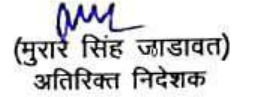 (मुरारे सिंह जाडावत)
अतिरिक्त निदेशक